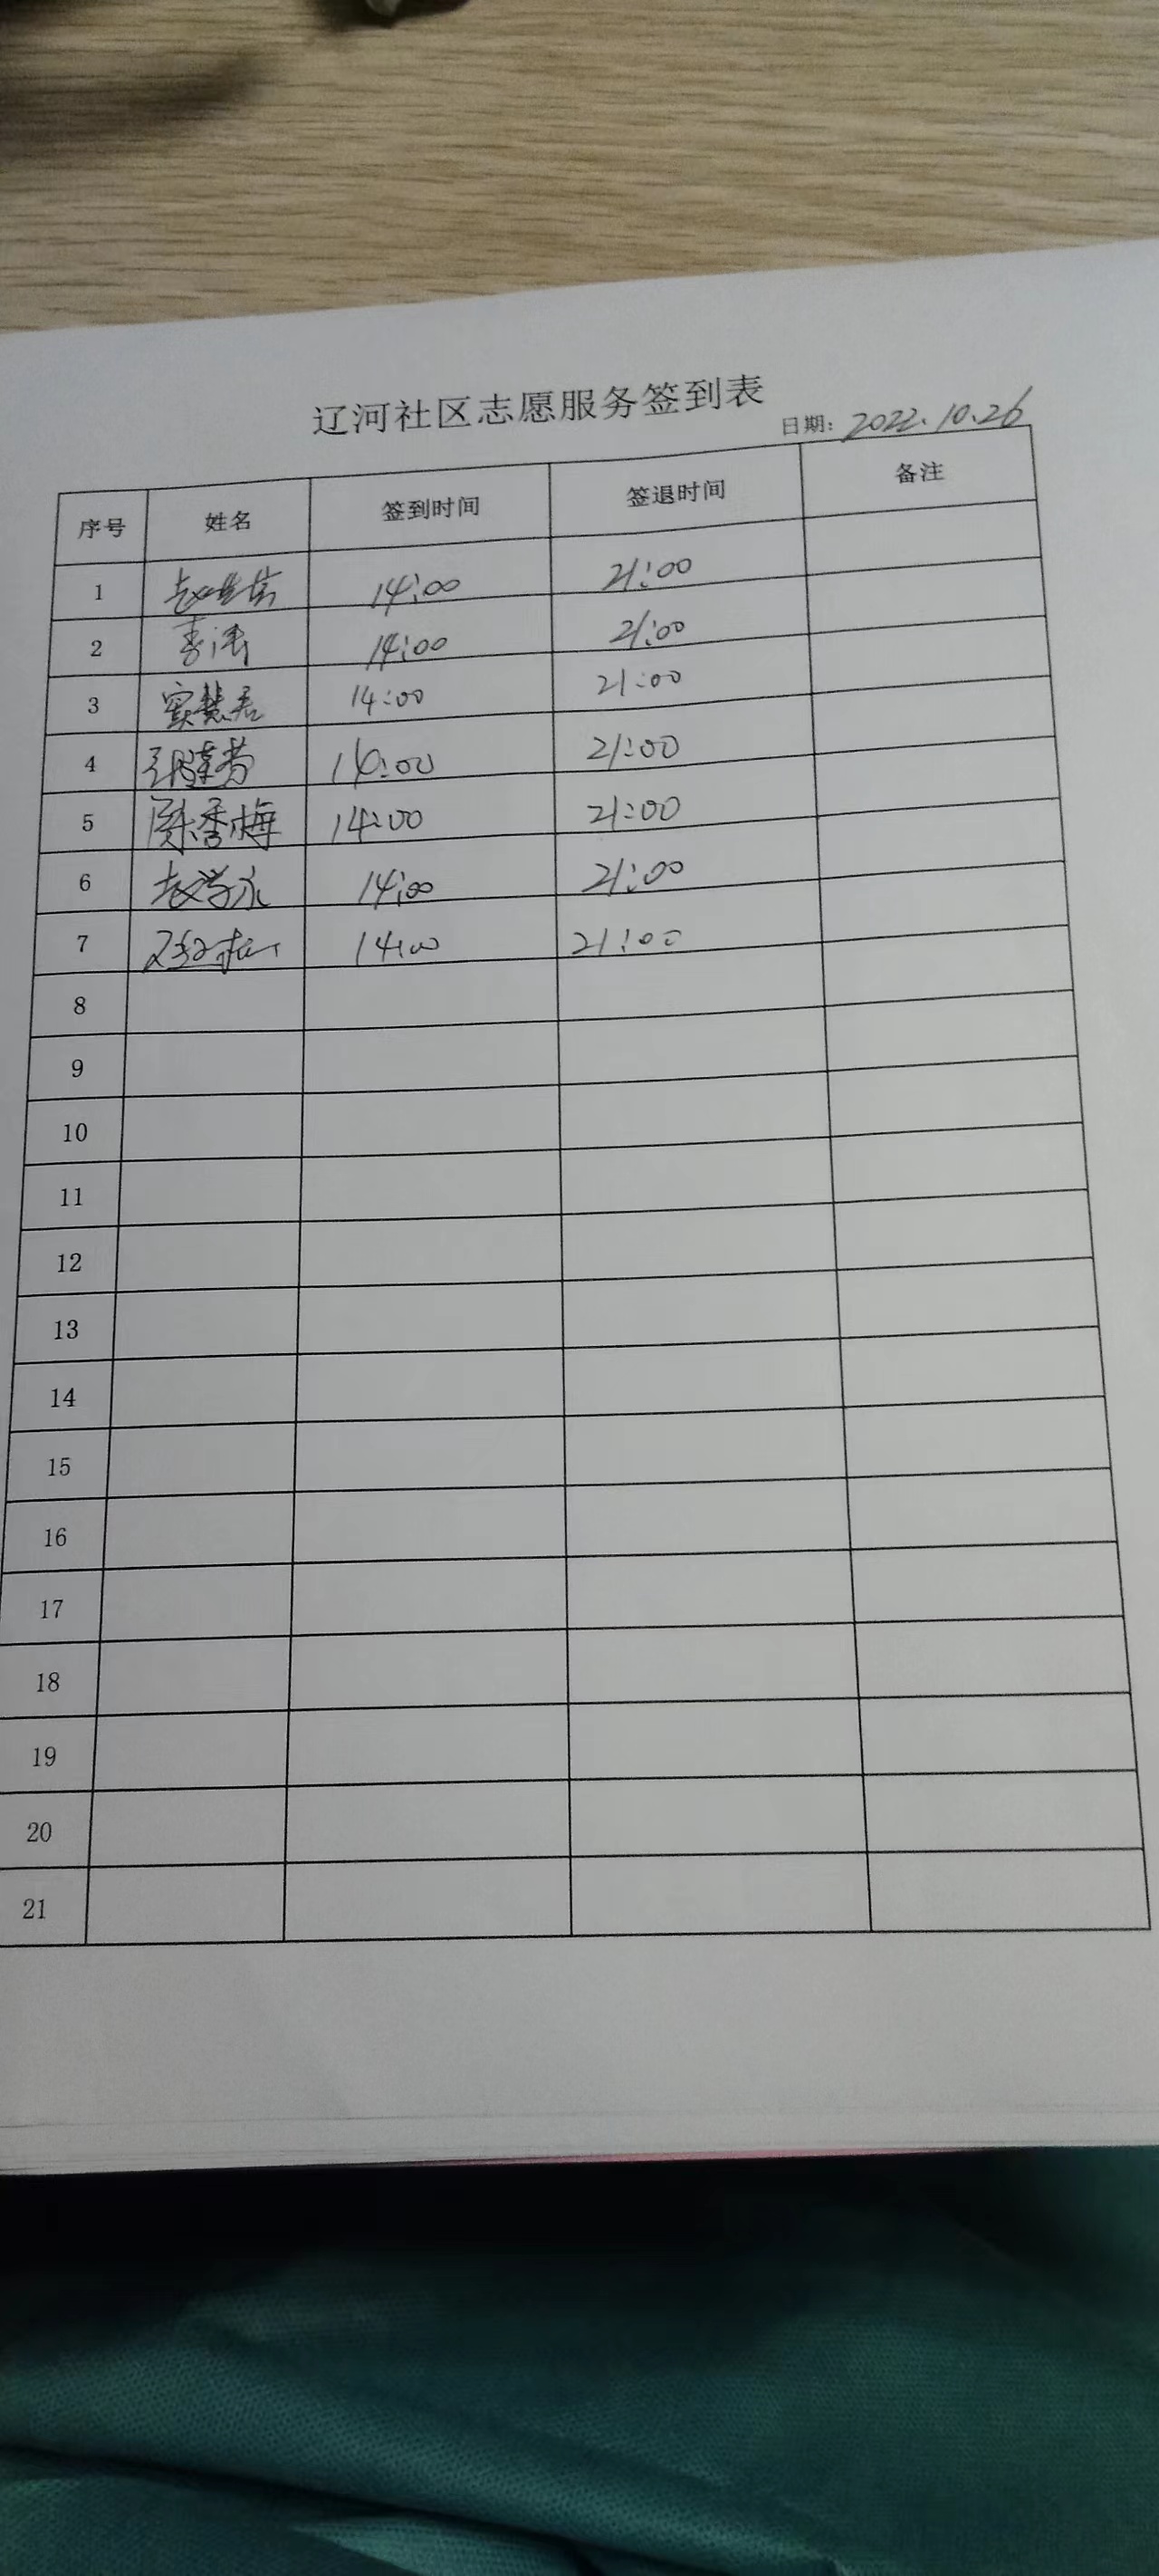 辽河社区志愿服务签到表
日期: 2022.10.26
序号 姓名 签到时间 签退时间 备注
1 14:00 21:00
2 李涛 14:00 21:00
3 窦慧君 14:00 21:00
4 14:00 21:00
5 陈秀梅 14:00 21:00
6 14:00 21:00
7 14:00 21:00
8
9
10
11
12
13
14
15
16
17
18
19
20
21